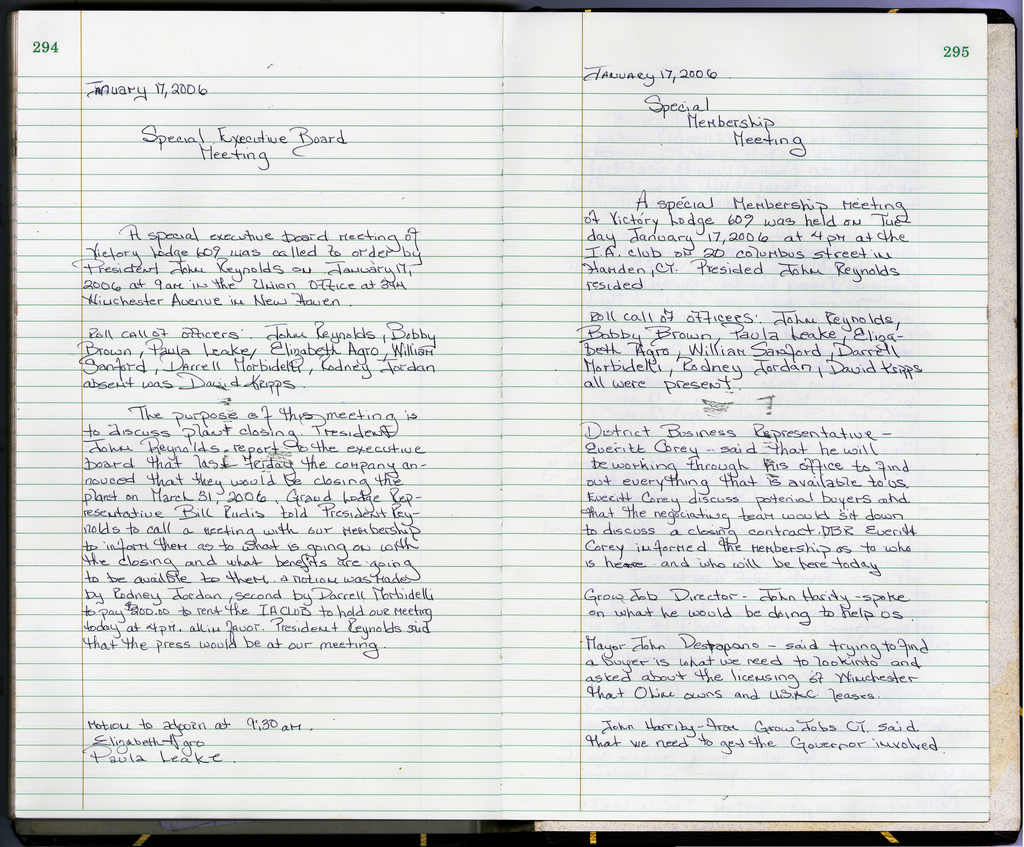 294
January 17, 2006
Special Executive Board
Meeting
A special executive board meeting of
Victory Lodge 609 was called to order by
President John Reynolds on January 17,
2006 at 9am in the Union Office at 344
Winchester Avenue in New Haven.
Roll call of officers: John Reynolds, Bobby
Brown, Paula Leake, Elizabeth Agro, William
Sanford, Darrell Morbidelli, Rodney Jordan
absent was David Kripps.
The purpose of this meeting is
to discuss plant closing President
John Reynolds report to the executive
board that last Friday the company an-
nouced that they would be closing the
plant on March 31, 2006. Grand Lodge Rep-
resentative Bill Rudis told President Rey-
nolds to call a meeting with our membership
to inform them as to what is going on with
the closing and what benefits are going
to be availble to them. a motion was made
by Rodney Jordan, second by Darrell Morbidelli
to pay $200.00 to rent the IA CLUB to hold our meeting
today at 4pm. all in favor. President Reynolds said
that the press would be at our meeting.
Motion to adjourn at 9:30 am.
Elizabeth Agro
Paula Leake.
295
January 17, 2006
Special
Membership
Meeting
A special Membership meeting
of Victory Lodge 609 was held on Tues
day January 17, 2006 at 4pm at the
I.A. club on 20 columbus street in
Hamden, CT. Presided John Reynolds
resided.
Roll call of officers: John Reynolds,
Bobby Brown, Paula Leake, Eliza-
Beth Agro, William Sanford, Darrell
Morbidelli, Rodney Jordan, David Kripps
all were present.
District Business Representative -
Everitt Corey - said that he will
be working through his office to find
out everything that is available to us.
Everitt Corey discuss potenial buyers and
that the negociating team would sit down
to discuss a closing contract. DBR Everitt
Corey informed the membership as to who
is here and who will be here today
Grow Job Director - John Harity - spoke
on what he would be doing to help us.
Mayor John Destapano - said trying to find
a buyer is what we need to look into and
asked about the licensing of Winchester
that Olin owns and U.S.R.C. leases.
John Harrity - from Grow Jobs CT. said
that we need to get the Governor involved.